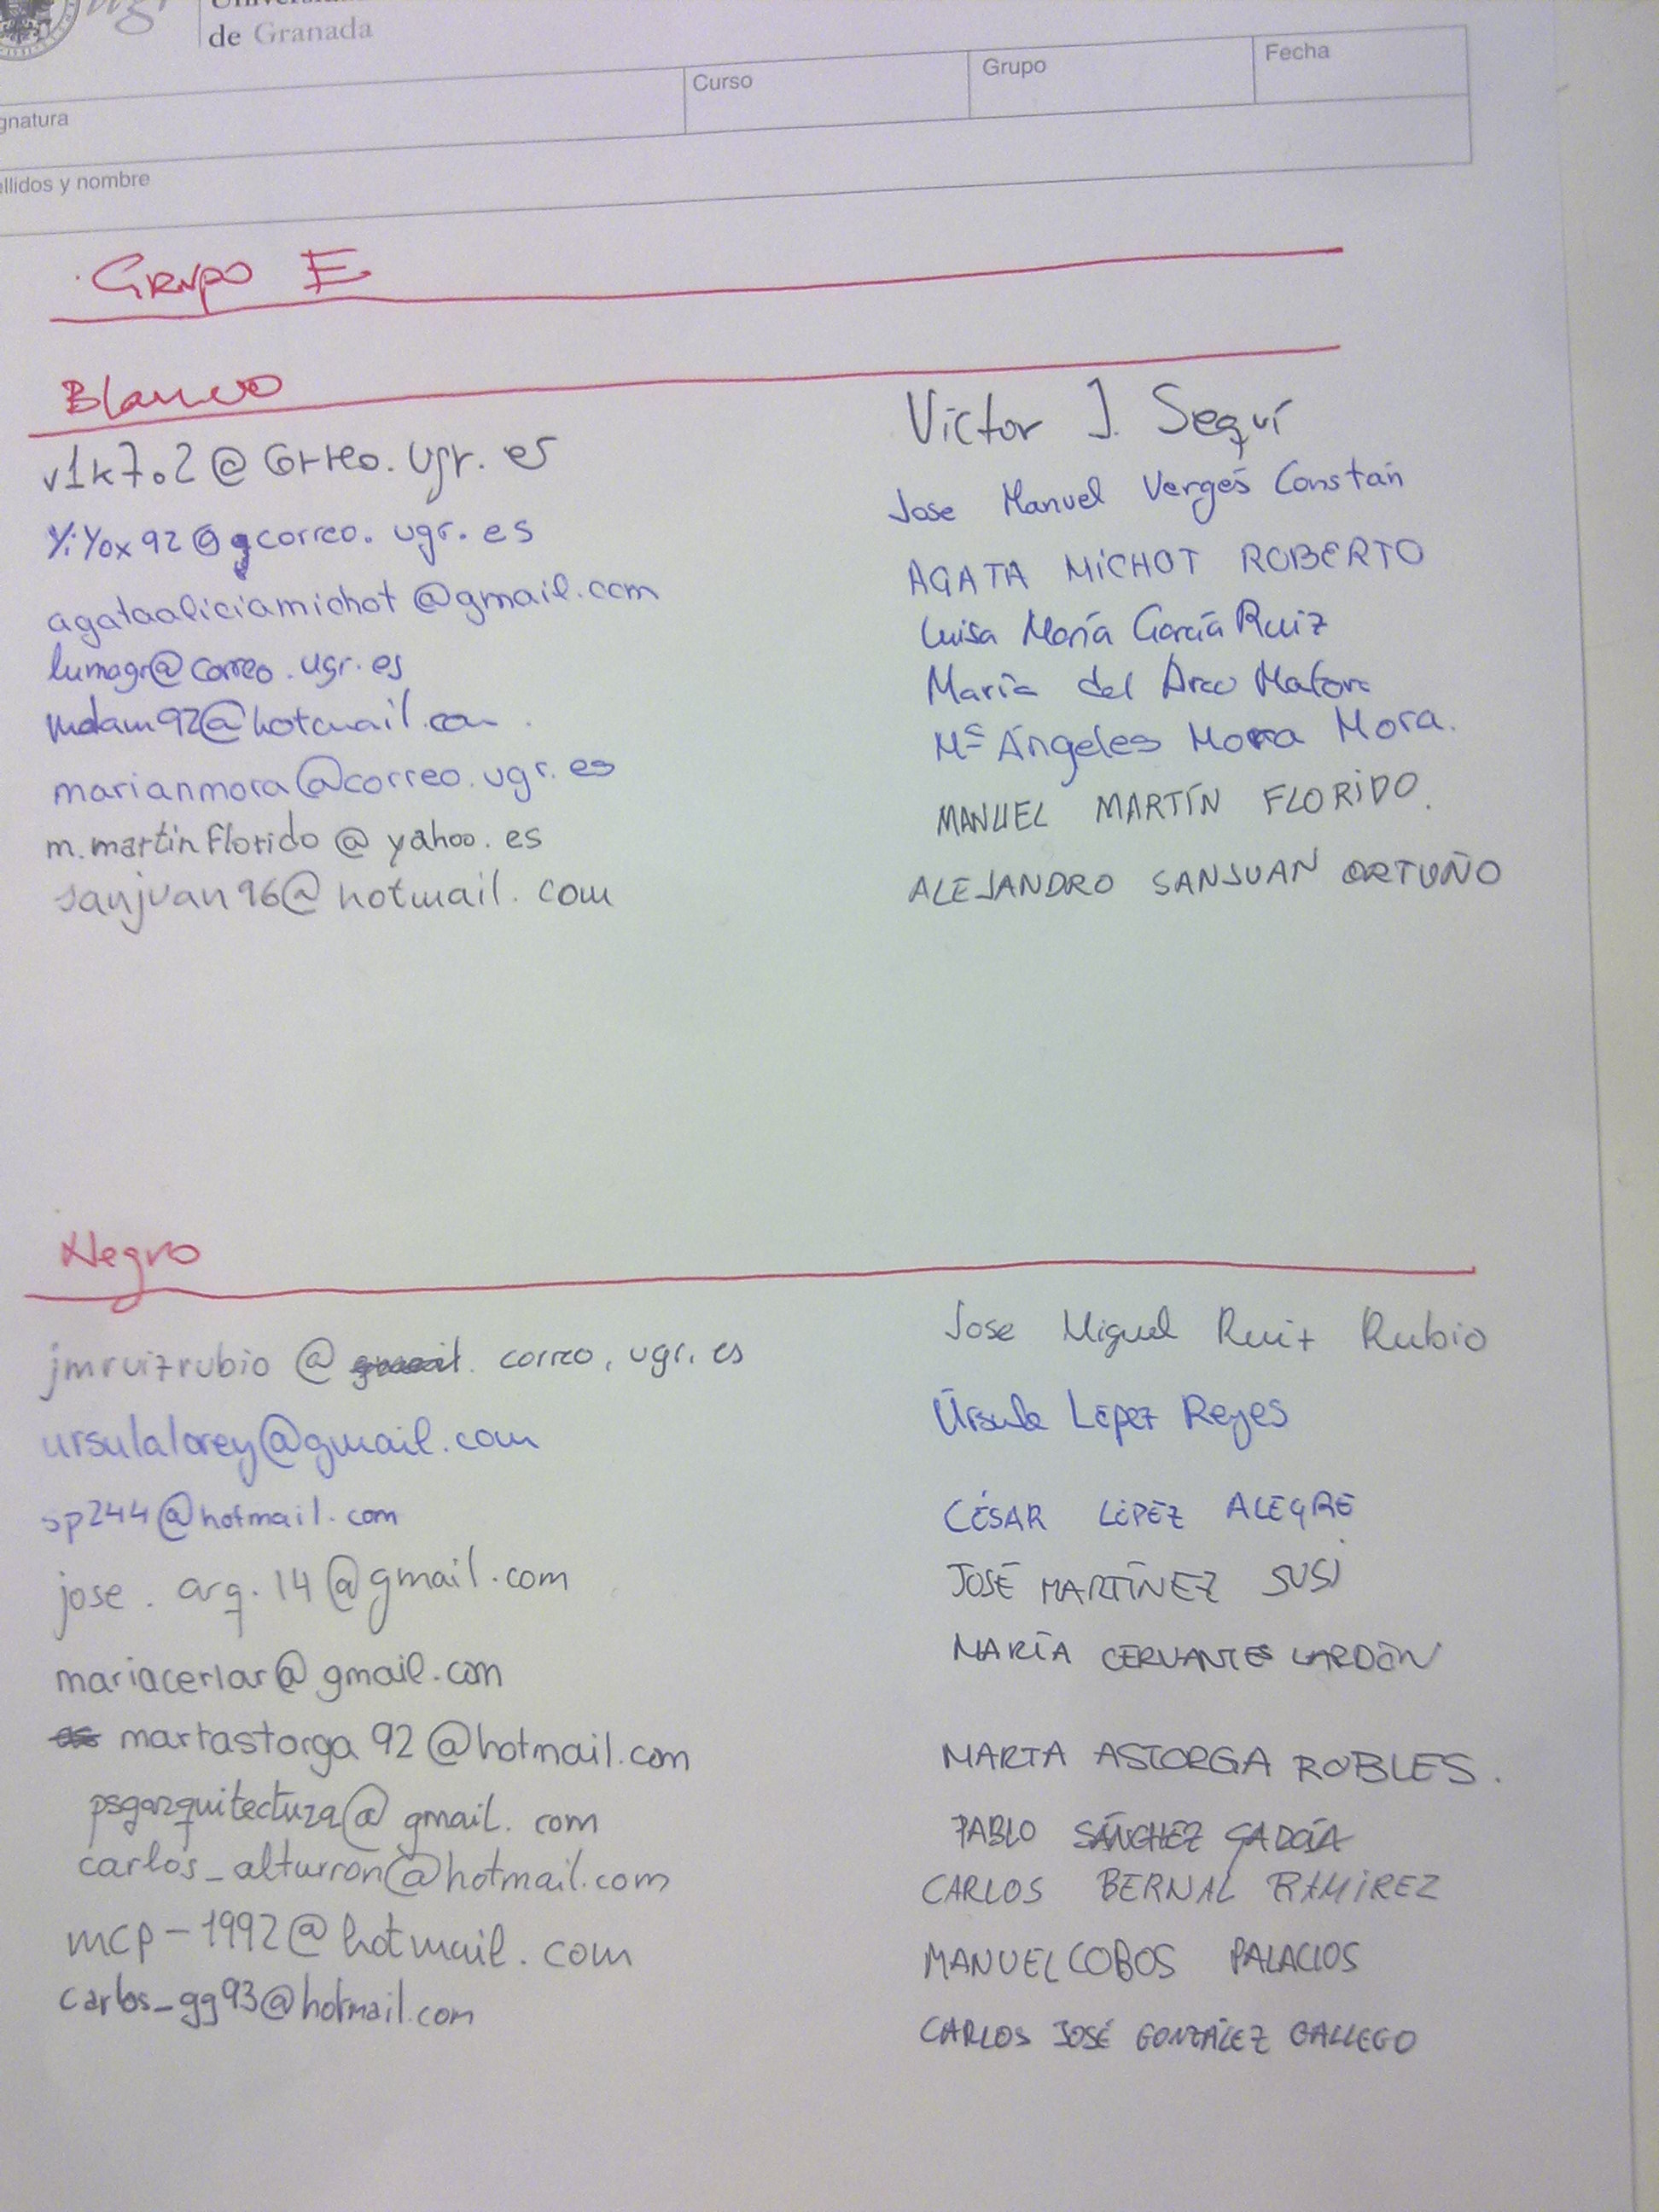 de Granada
Curso
Grupo
Fecha
gnatura
ellidos y nombre
Grupo E
Blanco
v1k7.2@correo.ugr.es Victor J. Seguí
yiyox92@gcorreo.ugr.es Jose Manuel Vergés Constán
agataaliciamichot@gmail.com ÁGATA MICHOT ROBERTO
lumagr@correo.ugr.es Luisa María García Ruiz
mdam92@hotmail.com María del Arco
marianmora@correo.ugr.es Mª Ángeles Mora Mora.
m.martinflorido@yahoo.es MANUEL MARTÍN FLORIDO.
sanjuan96@hotmail.com ALEJANDRO SANJUAN ORTUÑO
Negro
jmruizrubio@ correo.ugr.es Jose Miguel Ruiz Rubio
ursulalorey@gmail.com Úrsula López Reyes
sp244@hotmail.com CÉSAR LÓPEZ ALEGRE
jose.arq.14@gmail.com JOSÉ MARTÍNEZ SUSI
mariacerlar@gmail.com MARÍA CERVANTES LARDÓN
martastorga92@hotmail.com MARTA ASTORGA ROBLES.
psgarquitectura@gmail.com PABLO SÁNCHEZ GARCÍA
carlos_alturron@hotmail.com CARLOS BERNAL RAMÍREZ
mcp-1992@hotmail.com MANUEL COBOS PALACIOS
carlos_gg93@hotmail.com CARLOS JOSÉ GONZÁLEZ GALLEGO